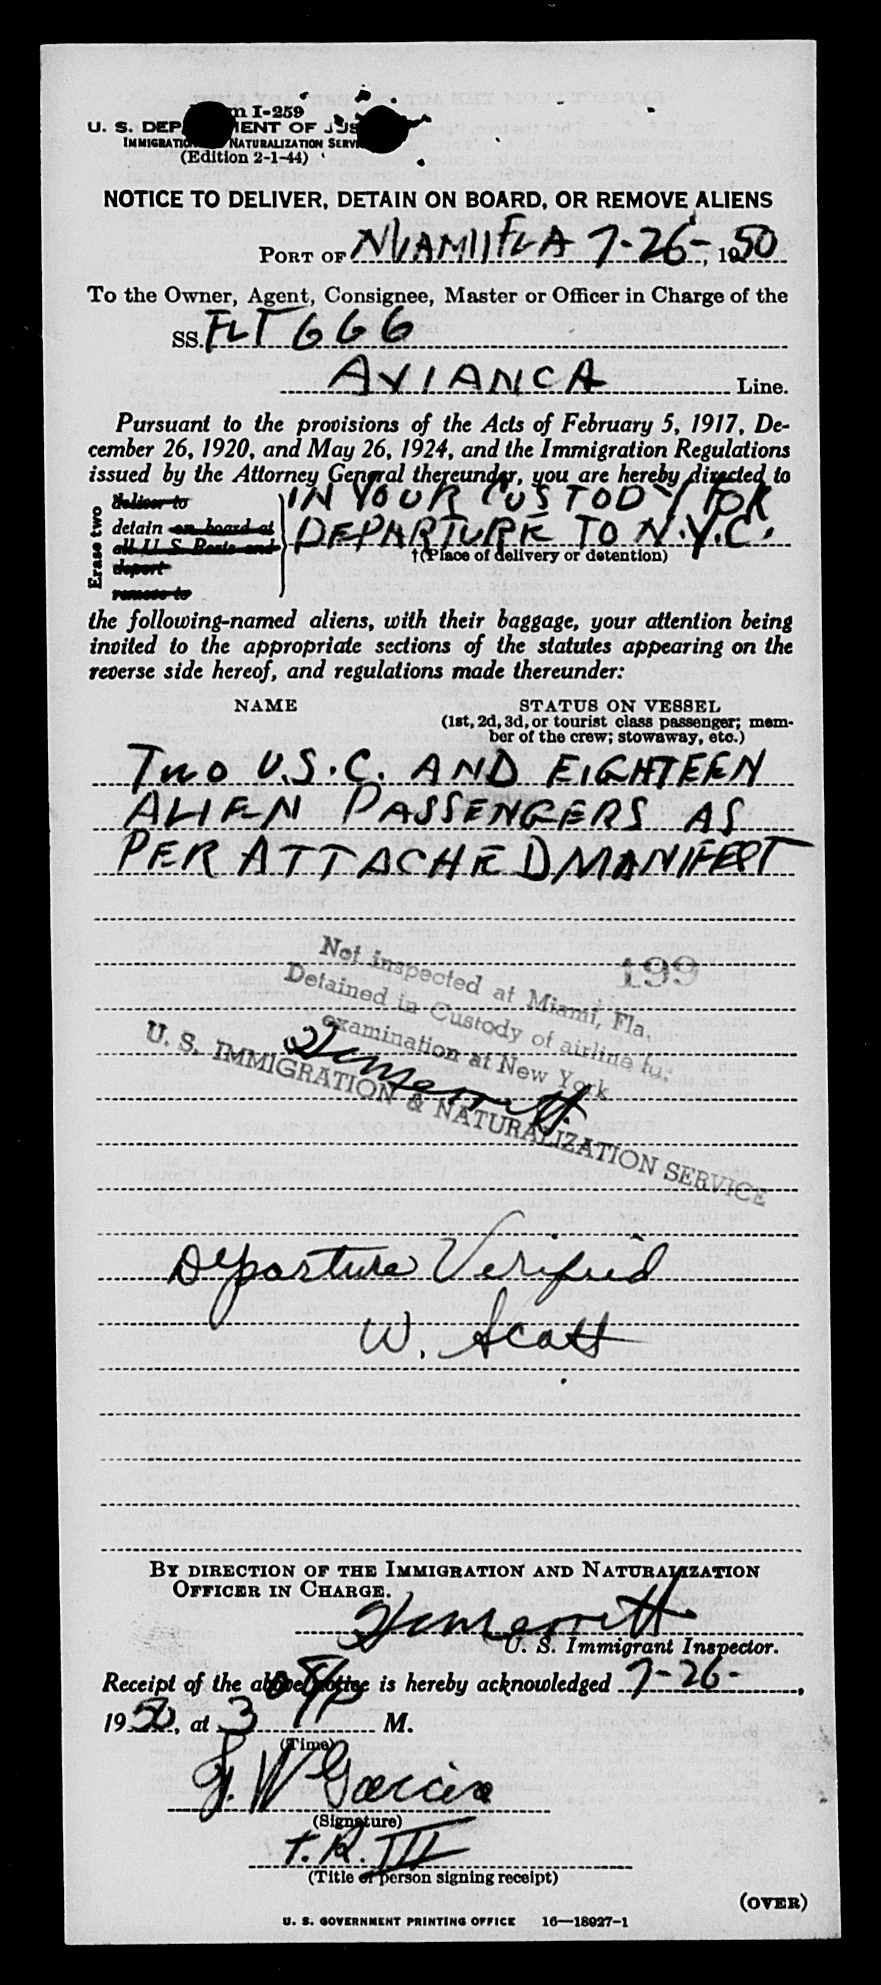 m I-259
U. S. DEP MENT OF JUS
IMMIGRATIO NATURALIZATION SERVI
(Edition 2-1-44)
NOTICE TO DELIVER, DETAIN ON BOARD, OR REMOVE ALIENS
PORT OF MIAMI FLA 7-26-, 1950
To the Owner, Agent, Consignee, Master or Officer in Charge of the
SS. FLT 666
AVIANCA Line.
Pursuant to the provisions of the Acts of February 5, 1917, De-
cember 26, 1920, and May 26, 1924, and the Immigration Regulations
issued by the Attorney General thereunder, you are hereby directed to
Erase two
deliver to
detain on board at
all U S Posts and
deport
remove to
IN YOUR CUSTODY FOR
DEPARTURE TO N.Y.C.
†(Place of delivery or detention)
the following-named aliens, with their baggage, your attention being
invited to the appropriate sections of the statutes appearing on the
reverse side hereof, and regulations made thereunder:
NAME STATUS ON VESSEL
(1st, 2d, 3d, or tourist class passenger; mem-
ber of the crew; stowaway, etc.)
TWO U.S.C. AND EIGHTEEN
ALIEN PASSENGERS AS
PER ATTACHED MANIFEST
199
Not inspected at Miami, Fla.
Detained in Custody of airline for
examination at New York
U. S. IMMIGRATION & NATURALIZATION SERVICE
Departure Verified
W. Scott
BY DIRECTION OF THE IMMIGRATION AND NATURALIZATION
OFFICER IN CHARGE.
Merritt
U. S. Immigrant Inspector.
Receipt of the above notice is hereby acknowledged 7-26-,
1950, at 3 P M.
(Time)
J. W Garcia
(Signature)
T. R. III
(Title of person signing receipt)
(OVER)
U. S. GOVERNMENT PRINTING OFFICE 16—18927-1